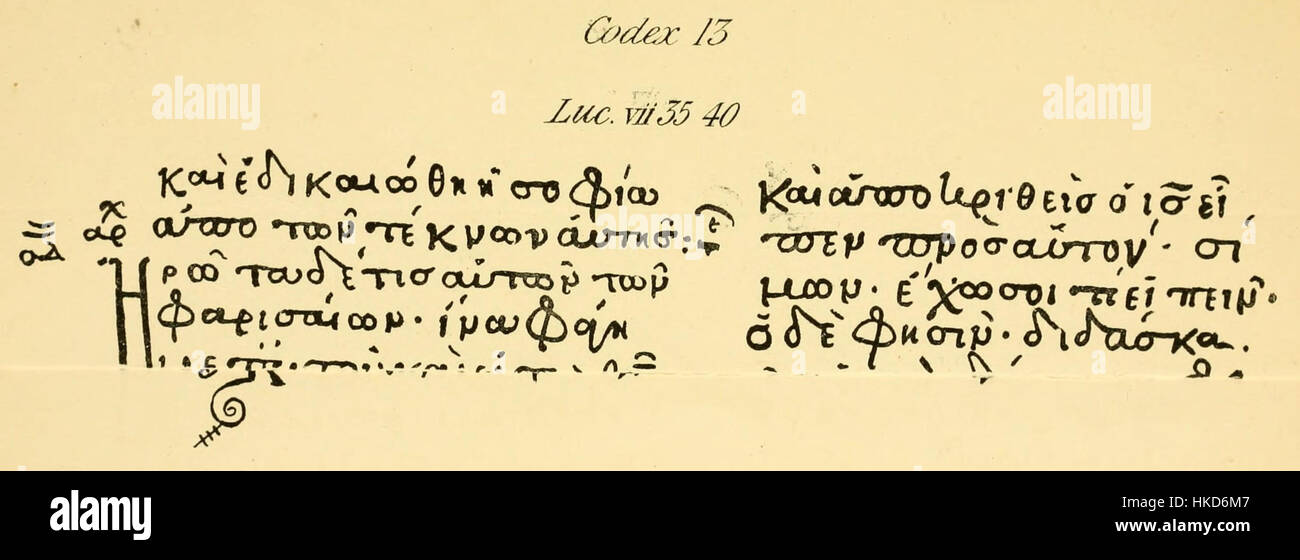 Codex 13
Luc. vii 35 40
καὶ ἐδικαιώθη ἡ σοφία
ἀπὸ τῶν τέκνων αὐτῆς·
Ἠρώτα δέ τις αὐτῶν τῶν
φαρισαίων· ἵνα φάγη
καὶ ἀποκριθεὶς ὁ ις̅ εἶ
πεν πρὸς αὐτόν· σί
μων· ἔχω σοί τι εἰπεῖν·
ὁ δὲ φησὶν· διδάσκα.
alamy
Image ID: HKD6M7
www.alamy.com